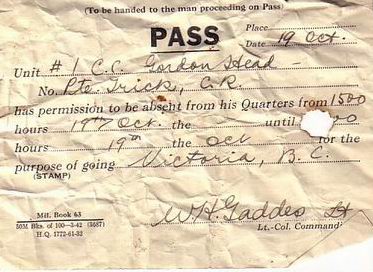 (To be handed to the man proceeding on Pass)
PASS
Place
Date 19 Oct.
Unit # 1 C.C. Gordon Head -
No. Pte. Trick, C.R.
has permission to be absent from his Quarters from 1500
hours 19th Oct. the until 00
hours 19th the Oct for the
purpose of going Victoria, B.C.
(STAMP)
Mil. Book 63
50M Bks. of 100—3-42 (5687)
H.Q. 1772-61-32
W.H. Gaddes Lt
Lt.-Col. Command